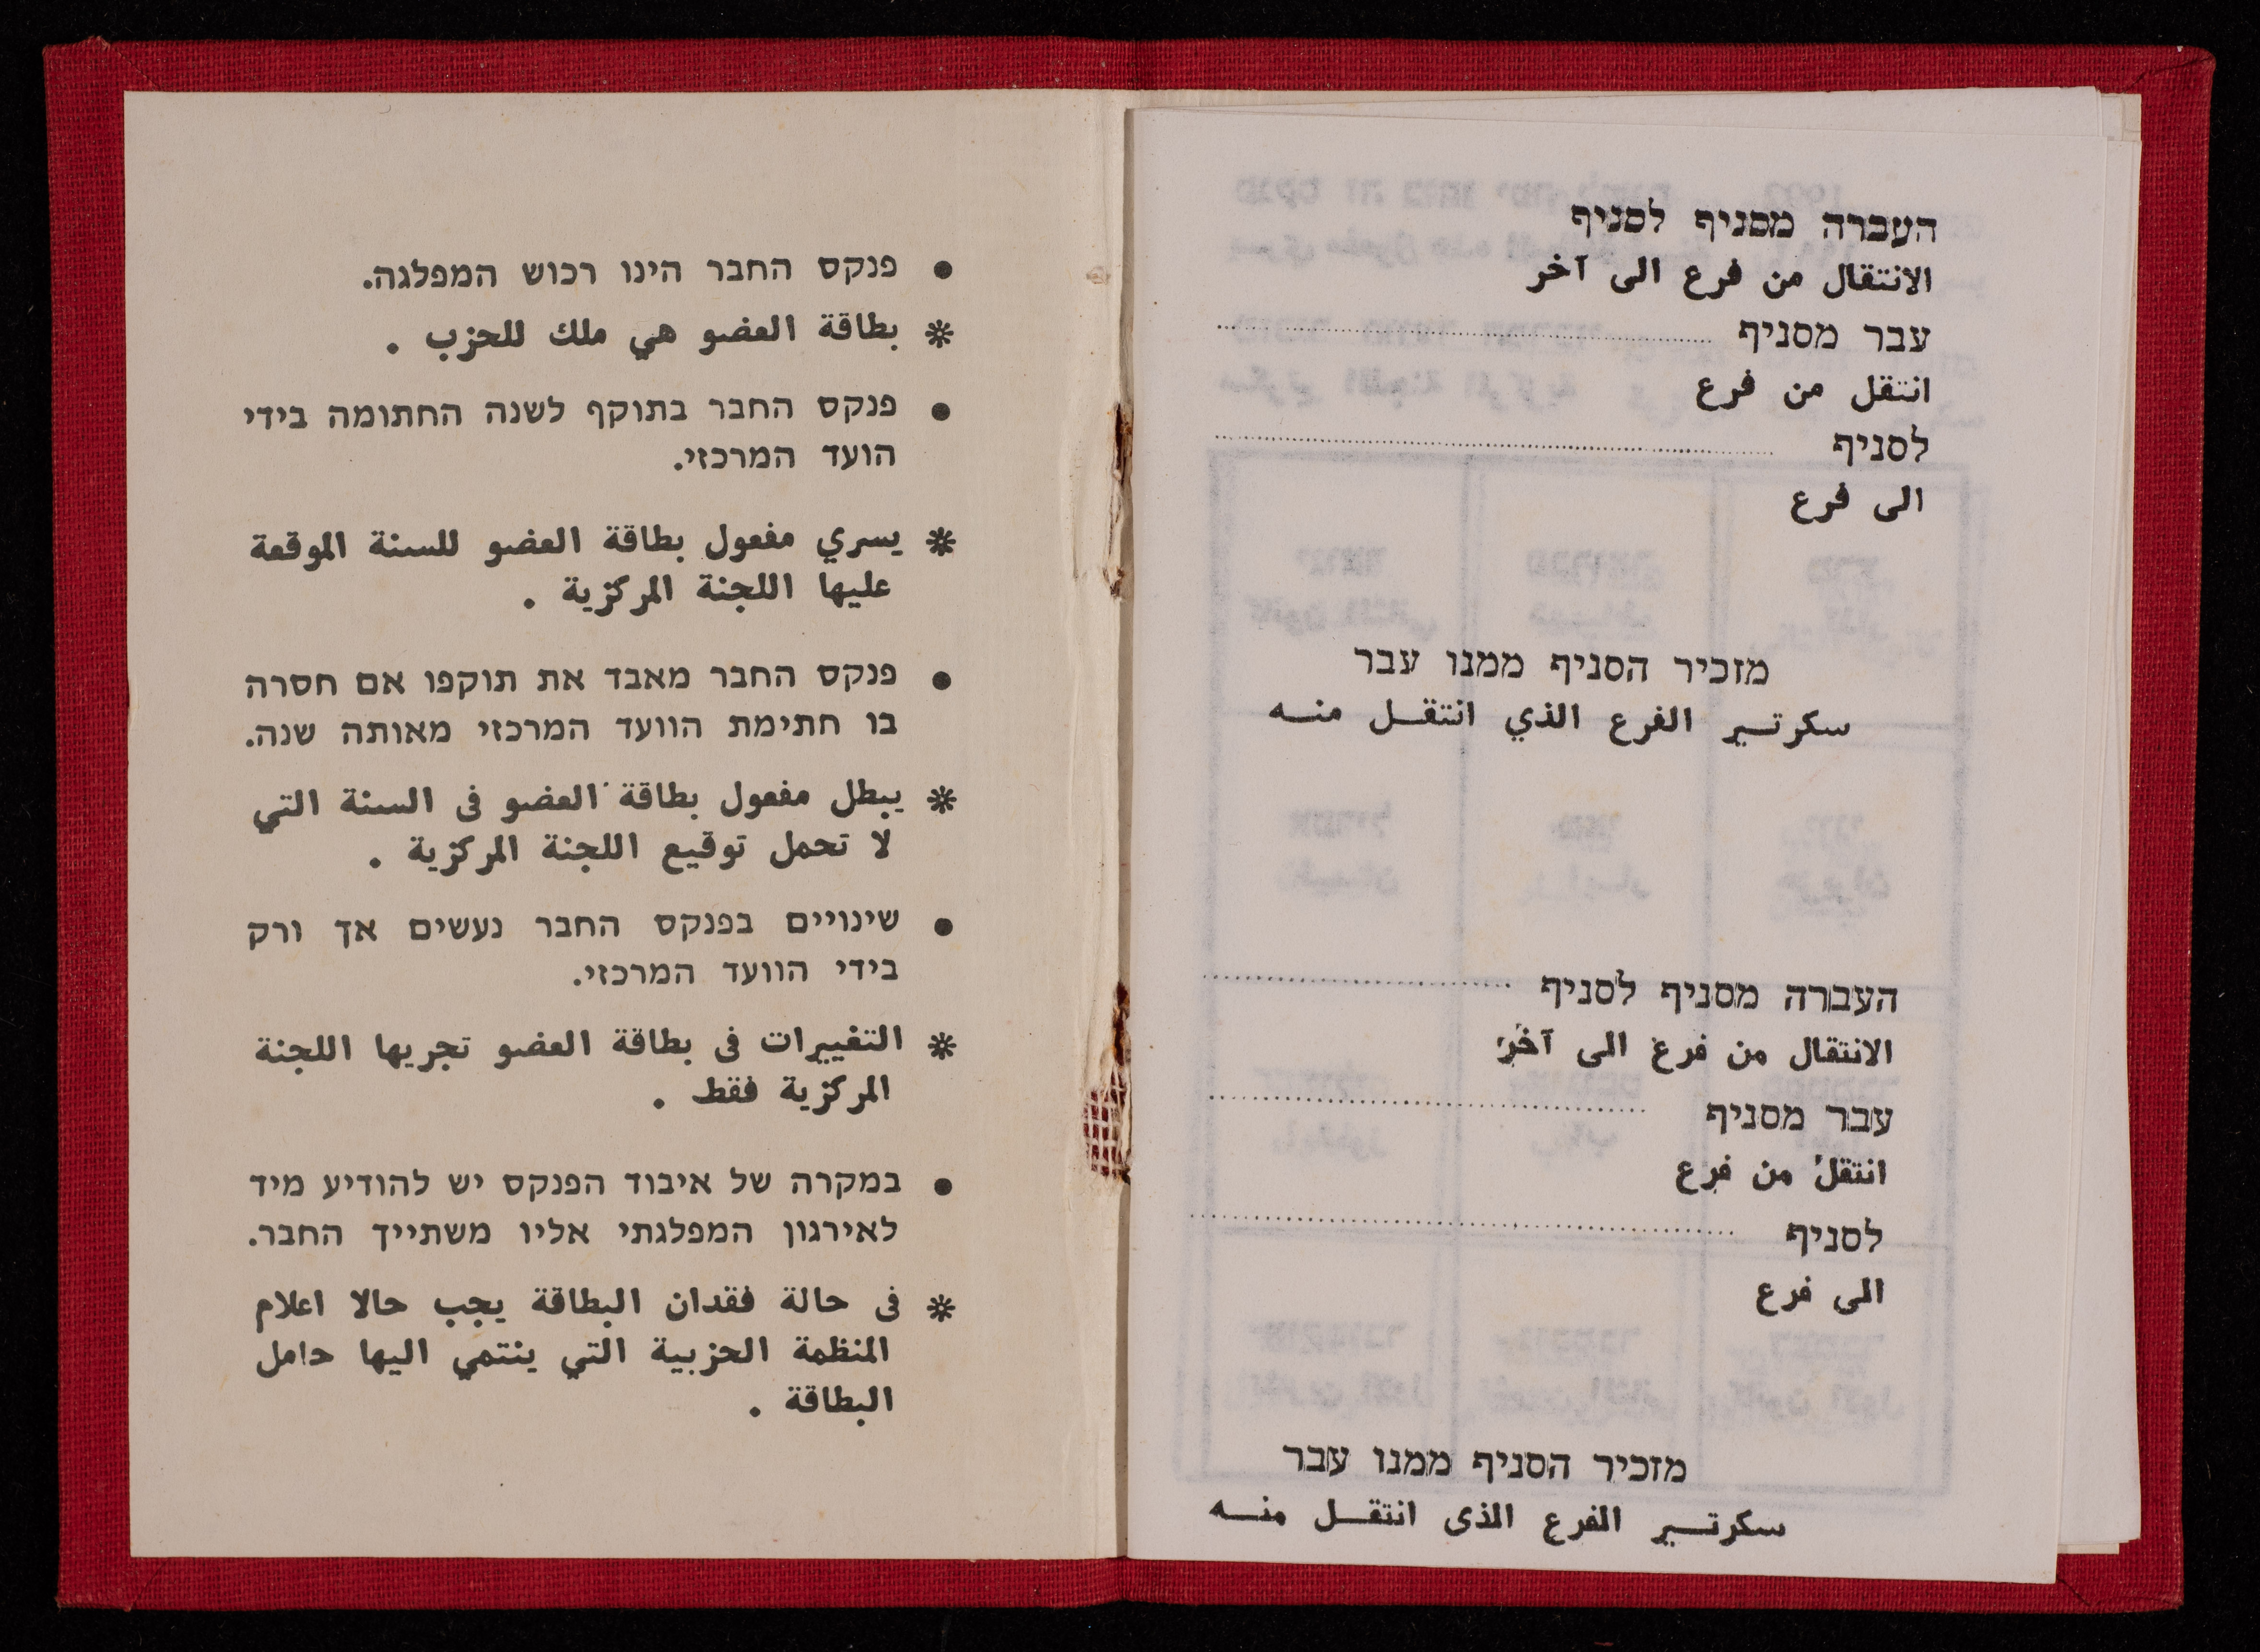 העברה מסניף לסניף
الانتقال من فرع الى آخر
עבר מסניף
انتقل من فرع
לסניף
الى فرع
מזכיר הסניף ממנו עבר
سكرتير الفرع الذي انتقل منه
העברה מסניף לסניף
الانتقال من فرع الى آخر
עבר מסניף
انتقل من فرع
לסניף
الى فرع
מזכיר הסניף ממנו עבר
سكرتير الفرع الذى انتقل منه
● פנקס החבר הינו רכוש המפלגה.
* بطاقة العضو هي ملك للحزب .
● פנקס החבר בתוקף לשנה החתומה בידי
הועד המרכזי.
* يسري مفعول بطاقة العضو للسنة الموقعة
عليها اللجنة المركزية .
● פנקס החבר מאבד את תוקפו אם חסרה
בו חתימת הוועד המרכזי מאותה שנה.
* يبطل مفعول بطاقة العضو فى السنة التي
لا تحمل توقيع اللجنة المركزية .
● שינויים בפנקס החבר נעשים אך ורק
בידי הוועד המרכזי.
* التغييرات فى بطاقة العضو تجريها اللجنة
المركزية فقط .
● במקרה של איבוד הפנקס יש להודיע מיד
לאירגון המפלגתי אליו משתייך החבר.
* فى حالة فقدان البطاقة يجب حالا اعلام
المنظمة الحزبية التي ينتمي اليها حامل
البطاقة .